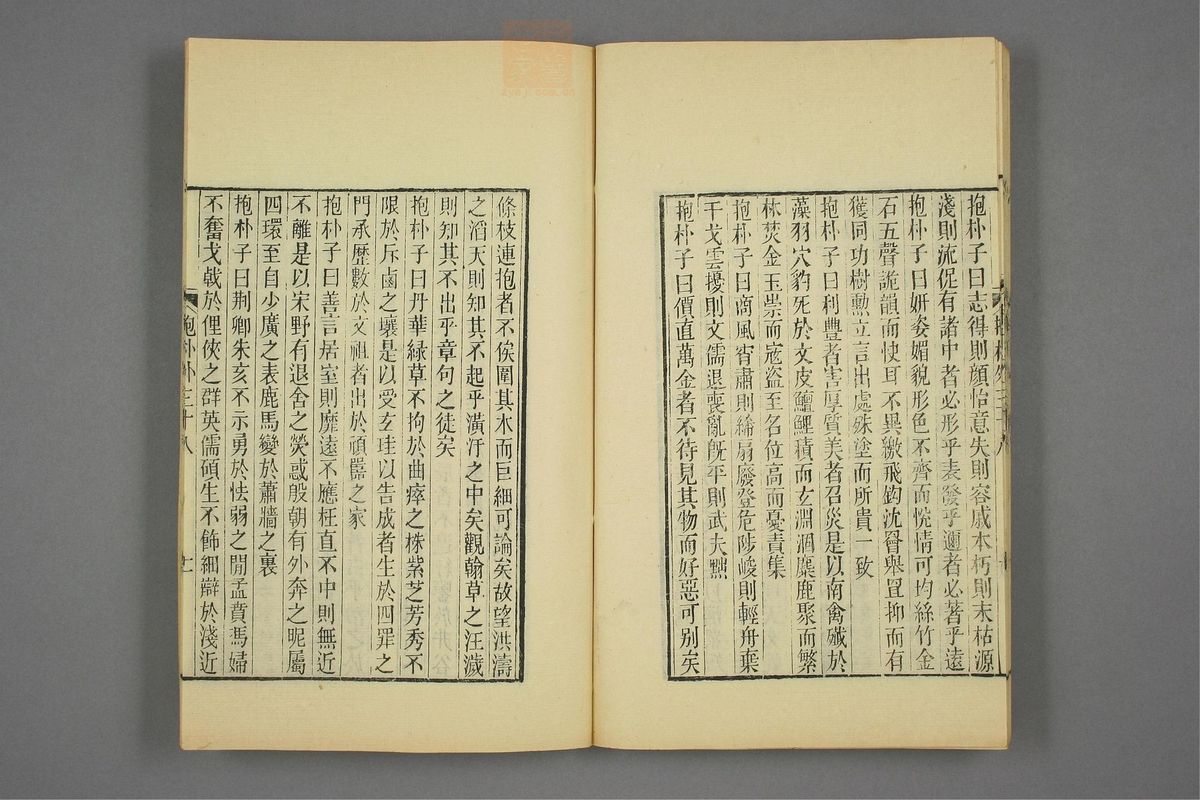 抱朴子曰志得則顔怡意失則容戚本朽則末枯源
淺則流促有諸中者必形乎表發乎邇者必著乎遠
抱朴子曰妍姿媚貌形色不齊而悅情可均絲竹金
石五聲詭韻而快耳不異繳飛鈎沈罾舉罝抑而有
獲同功樹勲立言出處殊塗而所貴一致
抱朴子曰利豐者害厚質美者召災是以南禽殲於
藻羽穴豹死於文皮鱣鯉積而玄淵涸麋鹿聚而繁
林焚金玉崇而寇盜至名位高而憂責集
抱朴子曰商風宵肅則絺扇廢登危陟峻則輕舟棄
干戈雲擾則文儒退喪亂旣平則武夫黜
抱朴子曰價直萬金者不待見其物而好惡可别矣
條枝連抱者不俟圍其木而巨細可論矣故望洪濤
之滔天則知其不起乎潢汙之中矣觀翰草之汪濊
則知其不出乎章句之徒矣
抱朴子曰丹華緑草不拘於曲瘁之株紫芝芳秀不
限於斥鹵之壤是以受玄珪以告成者生於四罪之
門承歷數於文祖者出於頑嚚之家
抱朴子曰善言居室則靡遠不應枉直不中則無近
不離是以宋野有退舍之熒惑殷朝有外奔之昵屬
四環至自少廣之表鹿馬變於蕭牆之裏
抱朴子曰荆卿朱亥不示勇於怯弱之閒孟賁馮婦
不奮戈戟於俚俠之群英儒碩生不飾細辯於淺近
抱朴外三十八
十一